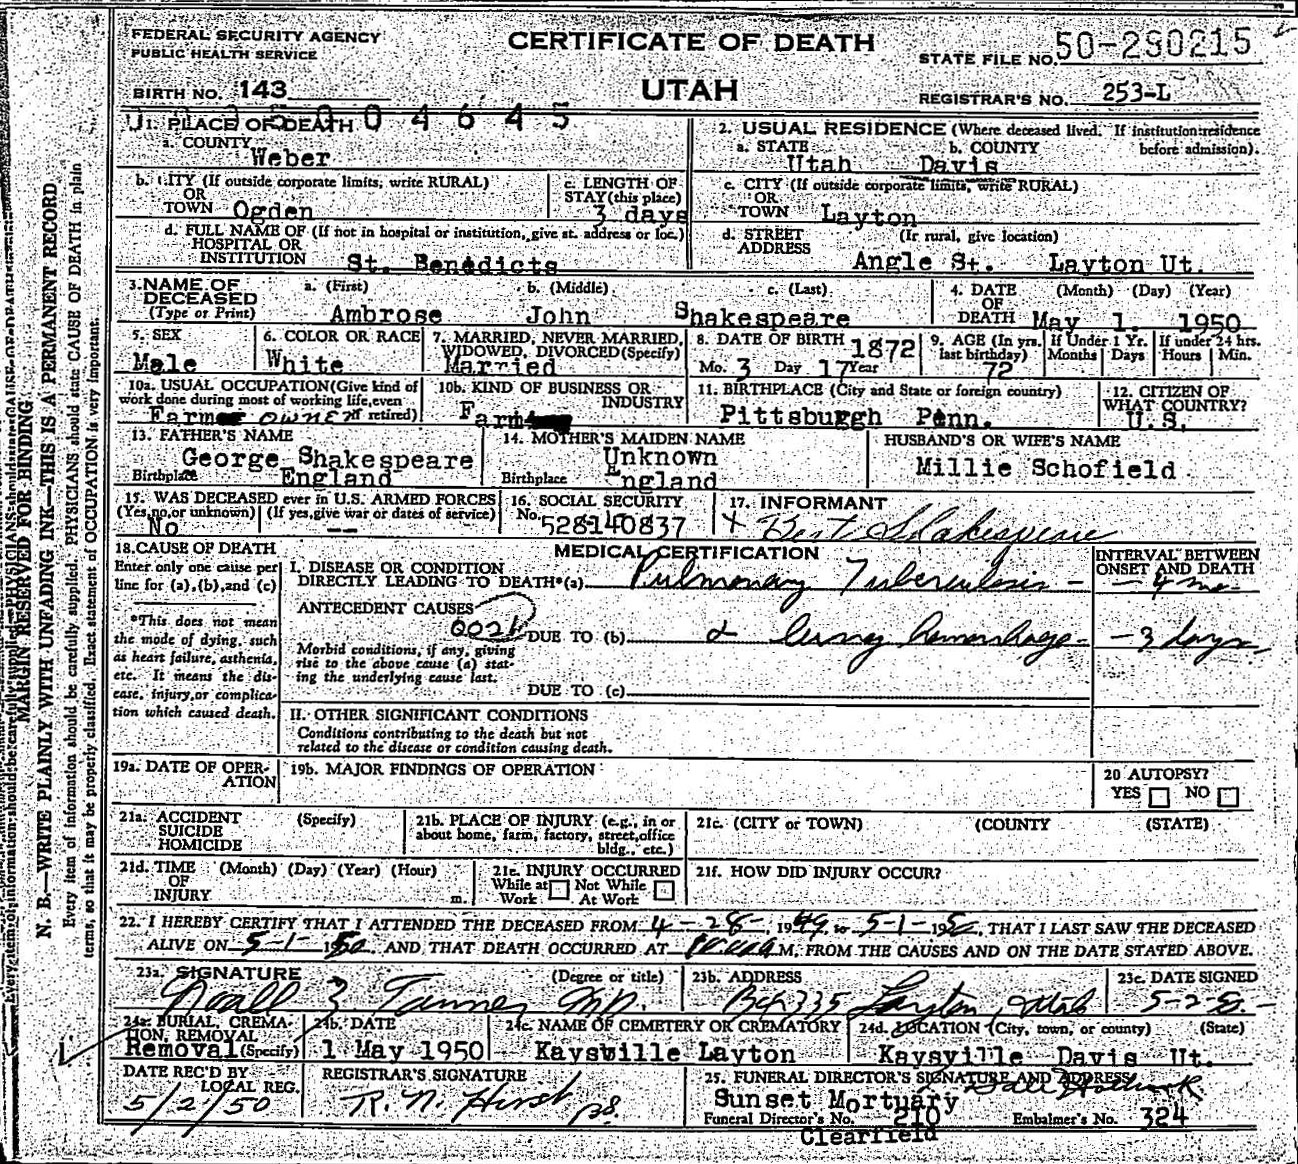 FEDERAL SECURITY AGENCY
PUBLIC HEALTH SERVICE
CERTIFICATE OF DEATH
STATE FILE NO. 50-290215
BIRTH NO. 143
UTAH
REGISTRAR'S NO. 253-L
004645
1. PLACE OF DEATH
a. COUNTY
Weber
2. USUAL RESIDENCE (Where deceased lived. If institution: residence
a. STATE b. COUNTY before admission).
Utah Davis
b. CITY (If outside corporate limits, write RURAL)
OR
TOWN Ogden
c. LENGTH OF
STAY (this place)
3 days
c. CITY (If outside corporate limits, write RURAL)
OR
TOWN Layton
d. FULL NAME OF (If not in hospital or institution, give st. address or loc.)
HOSPITAL OR
INSTITUTION St. Benedicts
d. STREET (If rural, give location)
ADDRESS
Angle St. Layton Ut.
3. NAME OF
DECEASED
(Type or Print)
a. (First) b. (Middle) c. (Last)
Ambrose John Shakespeare
4. DATE (Month) (Day) (Year)
OF
DEATH May 1. 1950
5. SEX
Male
6. COLOR OR RACE
White
7. MARRIED, NEVER MARRIED,
WIDOWED, DIVORCED (Specify)
Married
8. DATE OF BIRTH 1872
Mo. 3 Day 17 Year
9. AGE (In yrs.
last birthday)
72
If Under 1 Yr.
Months Days
If under 24 hrs.
Hours Min.
10a. USUAL OCCUPATION (Give kind of
work done during most of working life, even
Farm OWNER retired)
10b. KIND OF BUSINESS OR
INDUSTRY
Farm
11. BIRTHPLACE (City and State or foreign country)
Pittsburgh Penn.
12. CITIZEN OF
WHAT COUNTRY?
U.S.
13. FATHER'S NAME
George Shakespeare
Birthplace England
14. MOTHER'S MAIDEN NAME
Unknown
Birthplace England
HUSBAND'S OR WIFE'S NAME
Millie Schofield
15. WAS DECEASED ever in U.S. ARMED FORCES
(Yes, no, or unknown) (If yes, give war or dates of service)
No --
16. SOCIAL SECURITY
No. 528140837
17. INFORMANT
x Bert Shakespeare
18. CAUSE OF DEATH
Enter only one cause per
line for (a), (b), and (c)
MEDICAL CERTIFICATION
INTERVAL BETWEEN
ONSET AND DEATH
I. DISEASE OR CONDITION
DIRECTLY LEADING TO DEATH*(a) Pulmonary Tuberculosis - - 4 mo -
*This does not mean
the mode of dying, such
as heart failure, asthenia,
etc. It means the dis-
ease, injury, or complica-
tion which caused death.
ANTECEDENT CAUSES
DUE TO (b) & lung hemorrhage - - 3 days
Morbid conditions, if any, giving
rise to the above cause (a) stat-
ing the underlying cause last.
DUE TO (c)
II. OTHER SIGNIFICANT CONDITIONS
Conditions contributing to the death but not
related to the disease or condition causing death.
19a. DATE OF OPER-
ATION
19b. MAJOR FINDINGS OF OPERATION
20 AUTOPSY?
YES NO
21a. ACCIDENT (Specify)
SUICIDE
HOMICIDE
21b. PLACE OF INJURY (e.g., in or
about home, farm, factory, street, office
bldg., etc.)
21c. (CITY or TOWN) (COUNTY (STATE)
21d. TIME (Month) (Day) (Year) (Hour)
OF
INJURY m.
21e. INJURY OCCURRED
While at Not While
Work At Work
21f. HOW DID INJURY OCCUR?
22. I HEREBY CERTIFY THAT I ATTENDED THE DECEASED FROM 4-28-, 1949, to 5-1-1950, THAT I LAST SAW THE DECEASED
ALIVE ON 5-1-1950 AND THAT DEATH OCCURRED AT M. FROM THE CAUSES AND ON THE DATE STATED ABOVE.
23a. SIGNATURE (Degree or title)
Noall Z Tanner MD.
23b. ADDRESS
Box 335 Layton, Utah
23c. DATE SIGNED
5-2-50-
24a. BURIAL, CREMA-
TION, REMOVAL
Removal (Specify)
24b. DATE
1 May 1950
24c. NAME OF CEMETERY OR CREMATORY
Kaysville Layton
24d. LOCATION (City, town, or county) (State)
Kaysville Davis Ut.
DATE REC'D BY
LOCAL REG.
5/2/50
REGISTRAR'S SIGNATURE
R. N. Hirst
25. FUNERAL DIRECTOR'S SIGNATURE AND ADDRESS
Sunset Mortuary
Funeral Director's No. 210 Embalmer's No. 324
Clearfield
MARGIN RESERVED FOR BINDING
N. B.—WRITE PLAINLY WITH UNFADING INK—THIS IS A PERMANENT RECORD
Every item of information should be carefully supplied. PHYSICIANS should state CAUSE OF DEATH in plain
terms, so that it may be properly classified. Exact statement of OCCUPATION is very important.